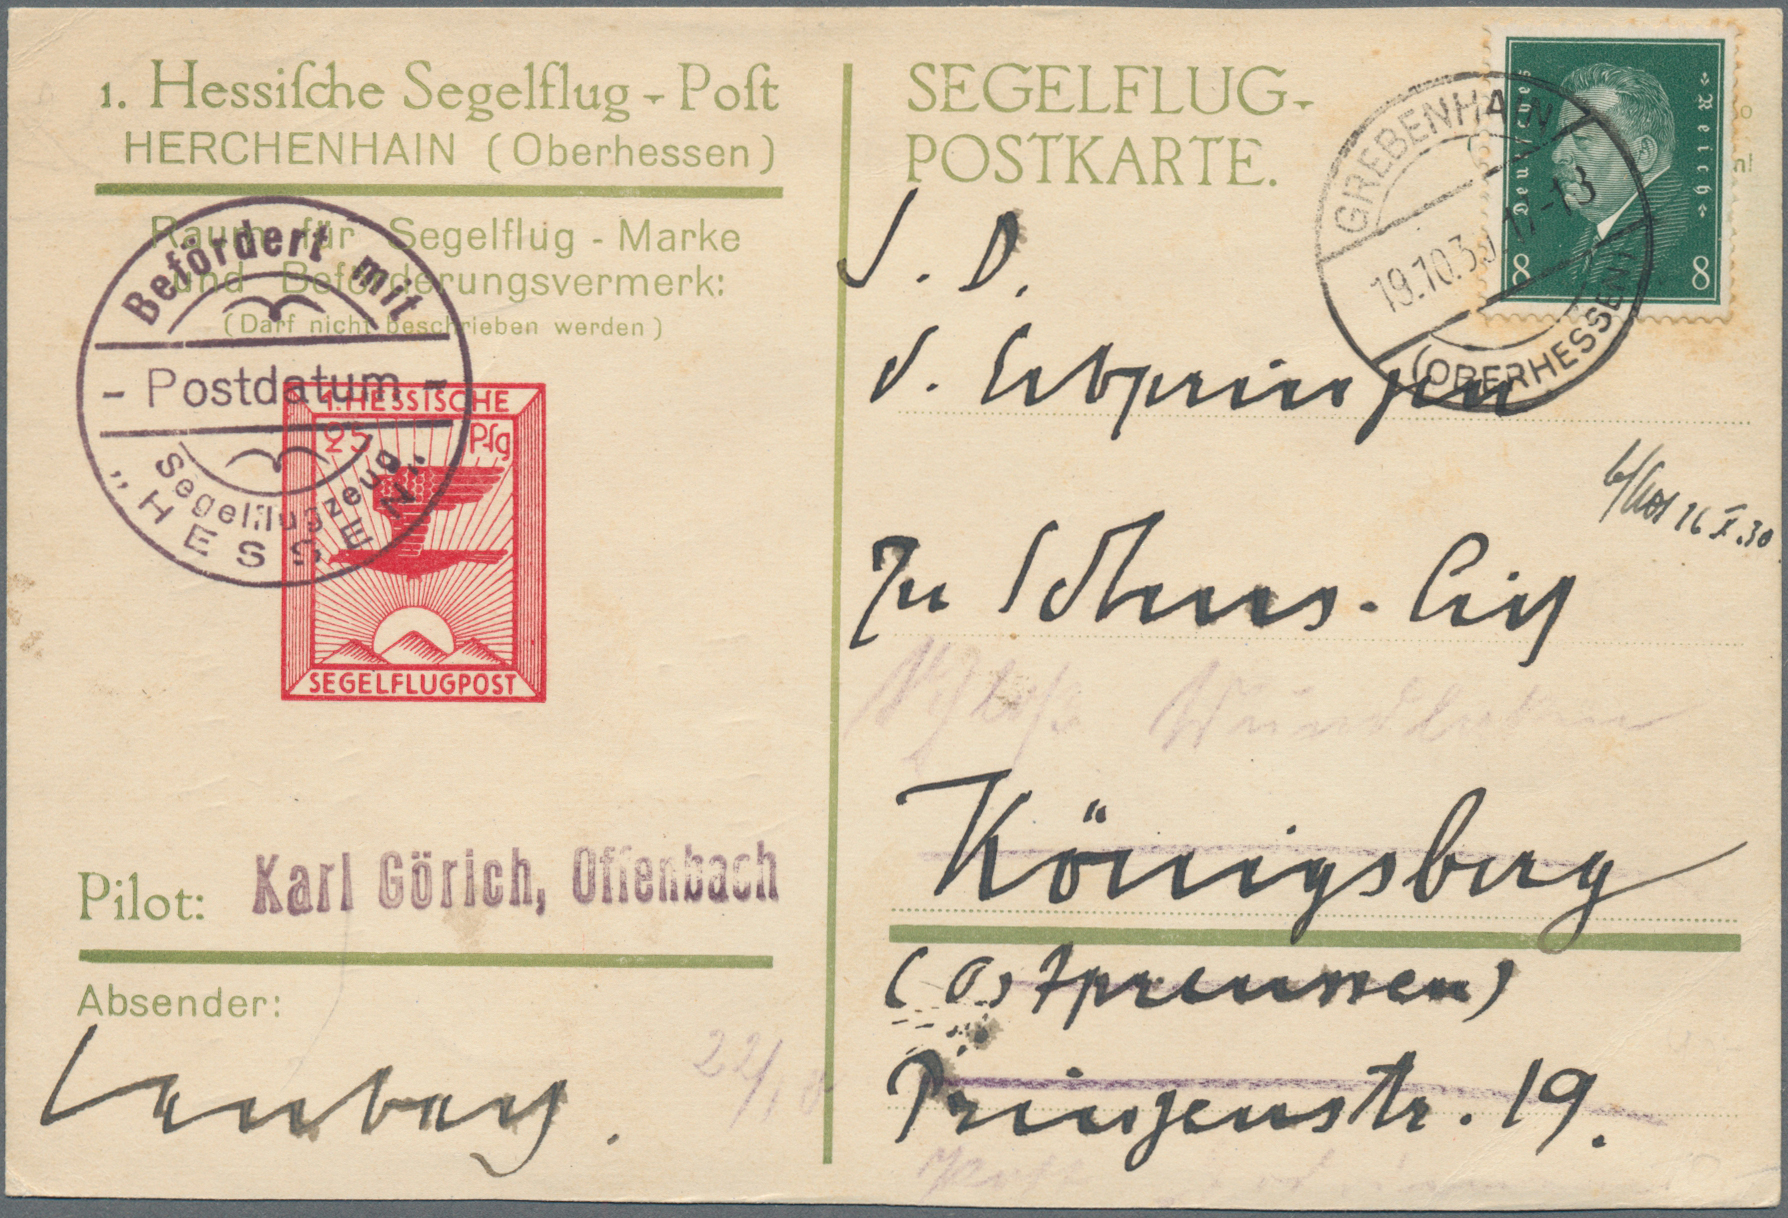 1. Hessische Segelflug-Post
HERCHENHAIN (Oberhessen)
Raum für Segelflug-Marke
und Beförderungsvermerk:
(Darf nicht beschrieben werden)
Befördert mit
- Postdatum -
Segelflugzeug
„HESSEN"
1. HESSISCHE
25 Pfg
SEGELFLUGPOST
Pilot: Karl Görich, Offenbach
Absender:
22/10
SEGELFLUG-
POSTKARTE.
GREBENHAIN
19.10.30 11-13
(OBERHESSEN)
Deutsches Reich
8 8
S. D.
d. Erbprinzen
16 X. 30
Zu
Königsberg
(Ostpreussen)
Prinzenstr. 19.